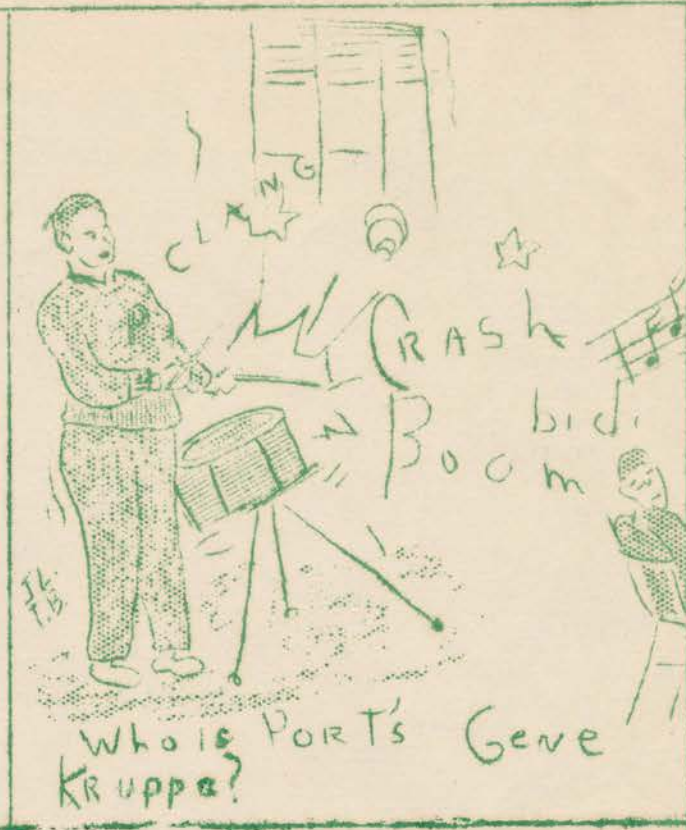 CLANG
P
CRASh
Boom
bidi
J.L.
T.B.
Who is PORT's Gene
KRuppa?